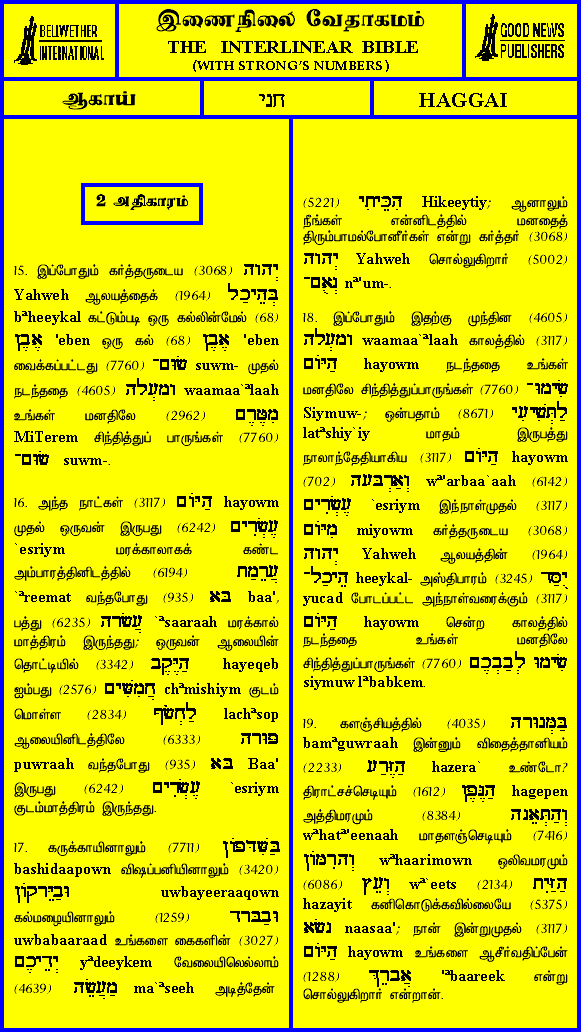 BELLWETHER
INTERNATIONAL
இணைநிலை வேதாகமம்
THE INTERLINEAR BIBLE
(WITH STRONG'S NUMBERS)
GOOD NEWS
PUBLISHERS
ஆகாய்
חגי
HAGGAI
2 அதிகாரம்
15. இப்போதும் கர்த்தருடைய (3068) יְהוה
Yahweh ஆலயத்தைக் (1964) בְּהֵיכַל
bªheeykal கட்டும்படி ஒரு கல்லின்மேல் (68)
אֶבֶן 'eben ஒரு கல் (68) אֶבֶן 'eben
வைக்கப்பட்டது (7760) שׂוּם־ suwm- முதல்
நடந்ததை (4605) ומעְלה waamaa`ªlaah
உங்கள் மனதிலே (2962) מִטֶּרֶם
MiTerem சிந்தித்துப் பாருங்கள் (7760)
שׂוּם־ suwm-.
16. அந்த நாட்கள் (3117) היּוֹם hayowm
முதல் ஒருவன் இருபது (6242) עֶשְׂרִים
`esriym மரக்காலாகக் கண்ட
அம்பாரத்தினிடத்தில் (6194) ערֵמַת
`ªreemat வந்தபோது (935) בּא baa',
பத்து (6235) עֲשׂרה `ªsaaraah மரக்கால்
மாத்திரம் இருந்தது; ஒருவன் ஆலையின்
தொட்டியில் (3342) היֶּקֶב hayeqeb
ஐம்பது (2576) חֲמִשִּׁים chªmishiym குடம்
மொள்ள (2834) לַחְשׂף lachªsop
ஆலையினிடத்திலே (6333) פּוּרה
puwraah வந்தபோது (935) בּא Baa'
இருபது (6242) עֶשְׂרִים `esriym
குடம்மாத்திரம் இருந்தது.
17. கருக்காயினாலும் (7711) בַּשִּׁדּפוֹן
bashidaapown விஷப்பனியினாலும் (3420)
וּבַיֵּרקוֹן uwbayeeraaqown
கல்மழையினாலும் (1259) וּבַבּרד
uwbabaaraad உங்களை கைகளின் (3027)
יְדֵיכֶם yªdeeykem வேலையிலெல்லாம்
(4639) מַעֲשֵׂה ma`ªseeh அடித்தேன்
(5221) הִכֵּיתִי Hikeeytiy; ஆனாலும்
நீங்கள் என்னிடத்தில் மனதைத்
திரும்பாமல்போனீர்கள் என்று கர்த்தர் (3068)
יְהוה Yahweh சொல்லுகிறார் (5002)
נְאֻם־ nª'um-.
18. இப்போதும் இதற்கு முந்தின (4605)
ומעְלה waamaa`ªlaah காலத்தில் (3117)
היּוֹם hayowm நடந்ததை உங்கள்
மனதிலே சிந்தித்துப்பாருங்கள் (7760) שִׂימוּ־
Siymuw-; ஒன்பதாம் (8671) לַתְּשִׁיעִי
latªshiy`iy மாதம் இருபத்து
நாலாந்தேதியாகிய (3117) היּוֹם hayowm
(702) וְאַרְבּעה wª'arbaa`aah (6142)
עֶשְׂרִים `esriym இந்நாள்முதல் (3117)
מִיּוֹם miyowm கர்த்தருடைய (3068)
יְהוה Yahweh ஆலயத்தின் (1964)
הֵיכַל־ heeykal- அஸ்திபாரம் (3245) יֻסַּד
yucad போடப்பட்ட அந்நாள்வரைக்கும் (3117)
היּוֹם hayowm சென்ற காலத்தில்
நடந்ததை உங்கள் மனதிலே
சிந்தித்துப்பாருங்கள் (7760) שִׂימוּ לְבַבְכֶם
siymuw lªbabkem.
19. களஞ்சியத்தில் (4035) בַּמְּגוּרה
bamªguwraah இன்னும் விதைத்தானியம்
(2233) הַזֶּרַע hazera` உண்டோ?
திராட்சச்செடியும் (1612) הַגֶּפֶן hagepen
அத்திமரமும் (8384) וְהַתְּאֵנה
wªhatª'eenaah மாதளஞ்செடியும் (7416)
וְהרִמּוֹן wªhaarimown ஒலிவமரமும்
(6086) וְעֵץ wª`eets (2134) הַזַּיִת
hazayit கனிகொடுக்கவில்லையே (5375)
נשׂא naasaa'; நான் இன்றுமுதல் (3117)
היּוֹם hayowm உங்களை ஆசீர்வதிப்பேன்
(1288) אֲברֵךְ 'ªbaareek என்று
சொல்லுகிறார் என்றான்.